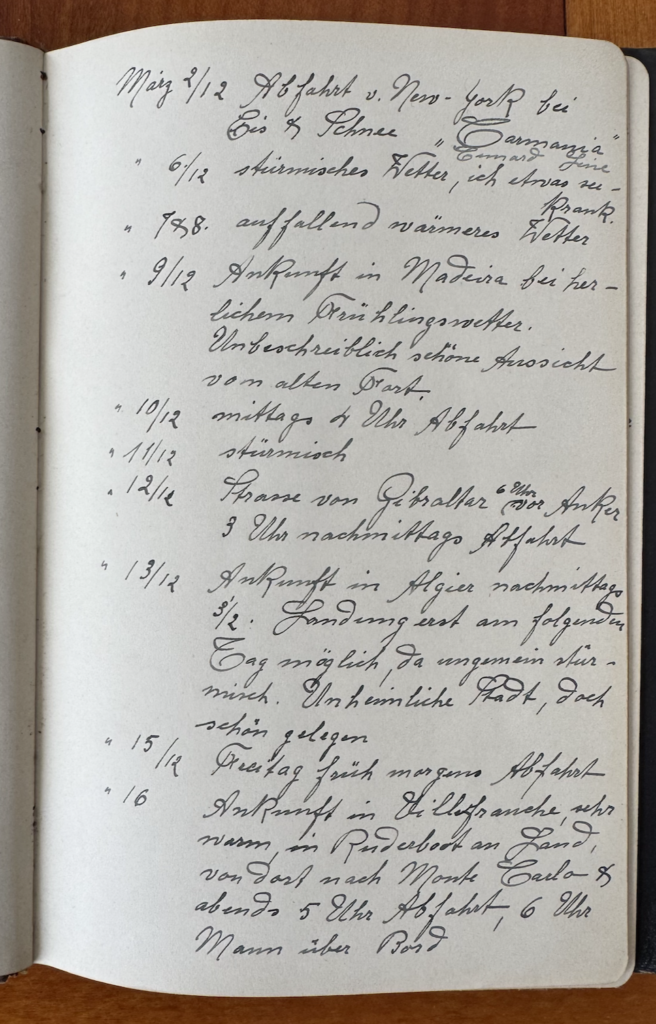 März 2/12 Abfahrt v. New-York bei
Eis & Schnee „Carmania"
Cunard Line
" 6/12 stürmisches Wetter, ich etwas see-
krank.
" 7&8. auffallend wärmeres Wetter
" 9/12 Ankunft in Madeira bei herr-
lichem Frühlingswetter.
Unbeschreiblich schöne Aussicht
vom alten Fort.
" 10/12 mittags 4 Uhr Abfahrt
" 11/12 stürmisch
" 12/12 Strasse von Gibraltar 6 Uhr vor Anker
3 Uhr nachmittags Abfahrt
" 13/12 Ankunft in Algier nachmittags
3 1/2. Landung erst am folgenden
Tag möglich, da ungemein stür-
misch. Unheimliche Stadt, doch
schön gelegen
" 15/12 Freitag früh morgens Abfahrt
" 16 Ankunft in Villefranche, sehr
warm, in Ruderboot an Land,
von dort nach Monte Carlo &
abends 5 Uhr Abfahrt, 6 Uhr
Mann über Bord